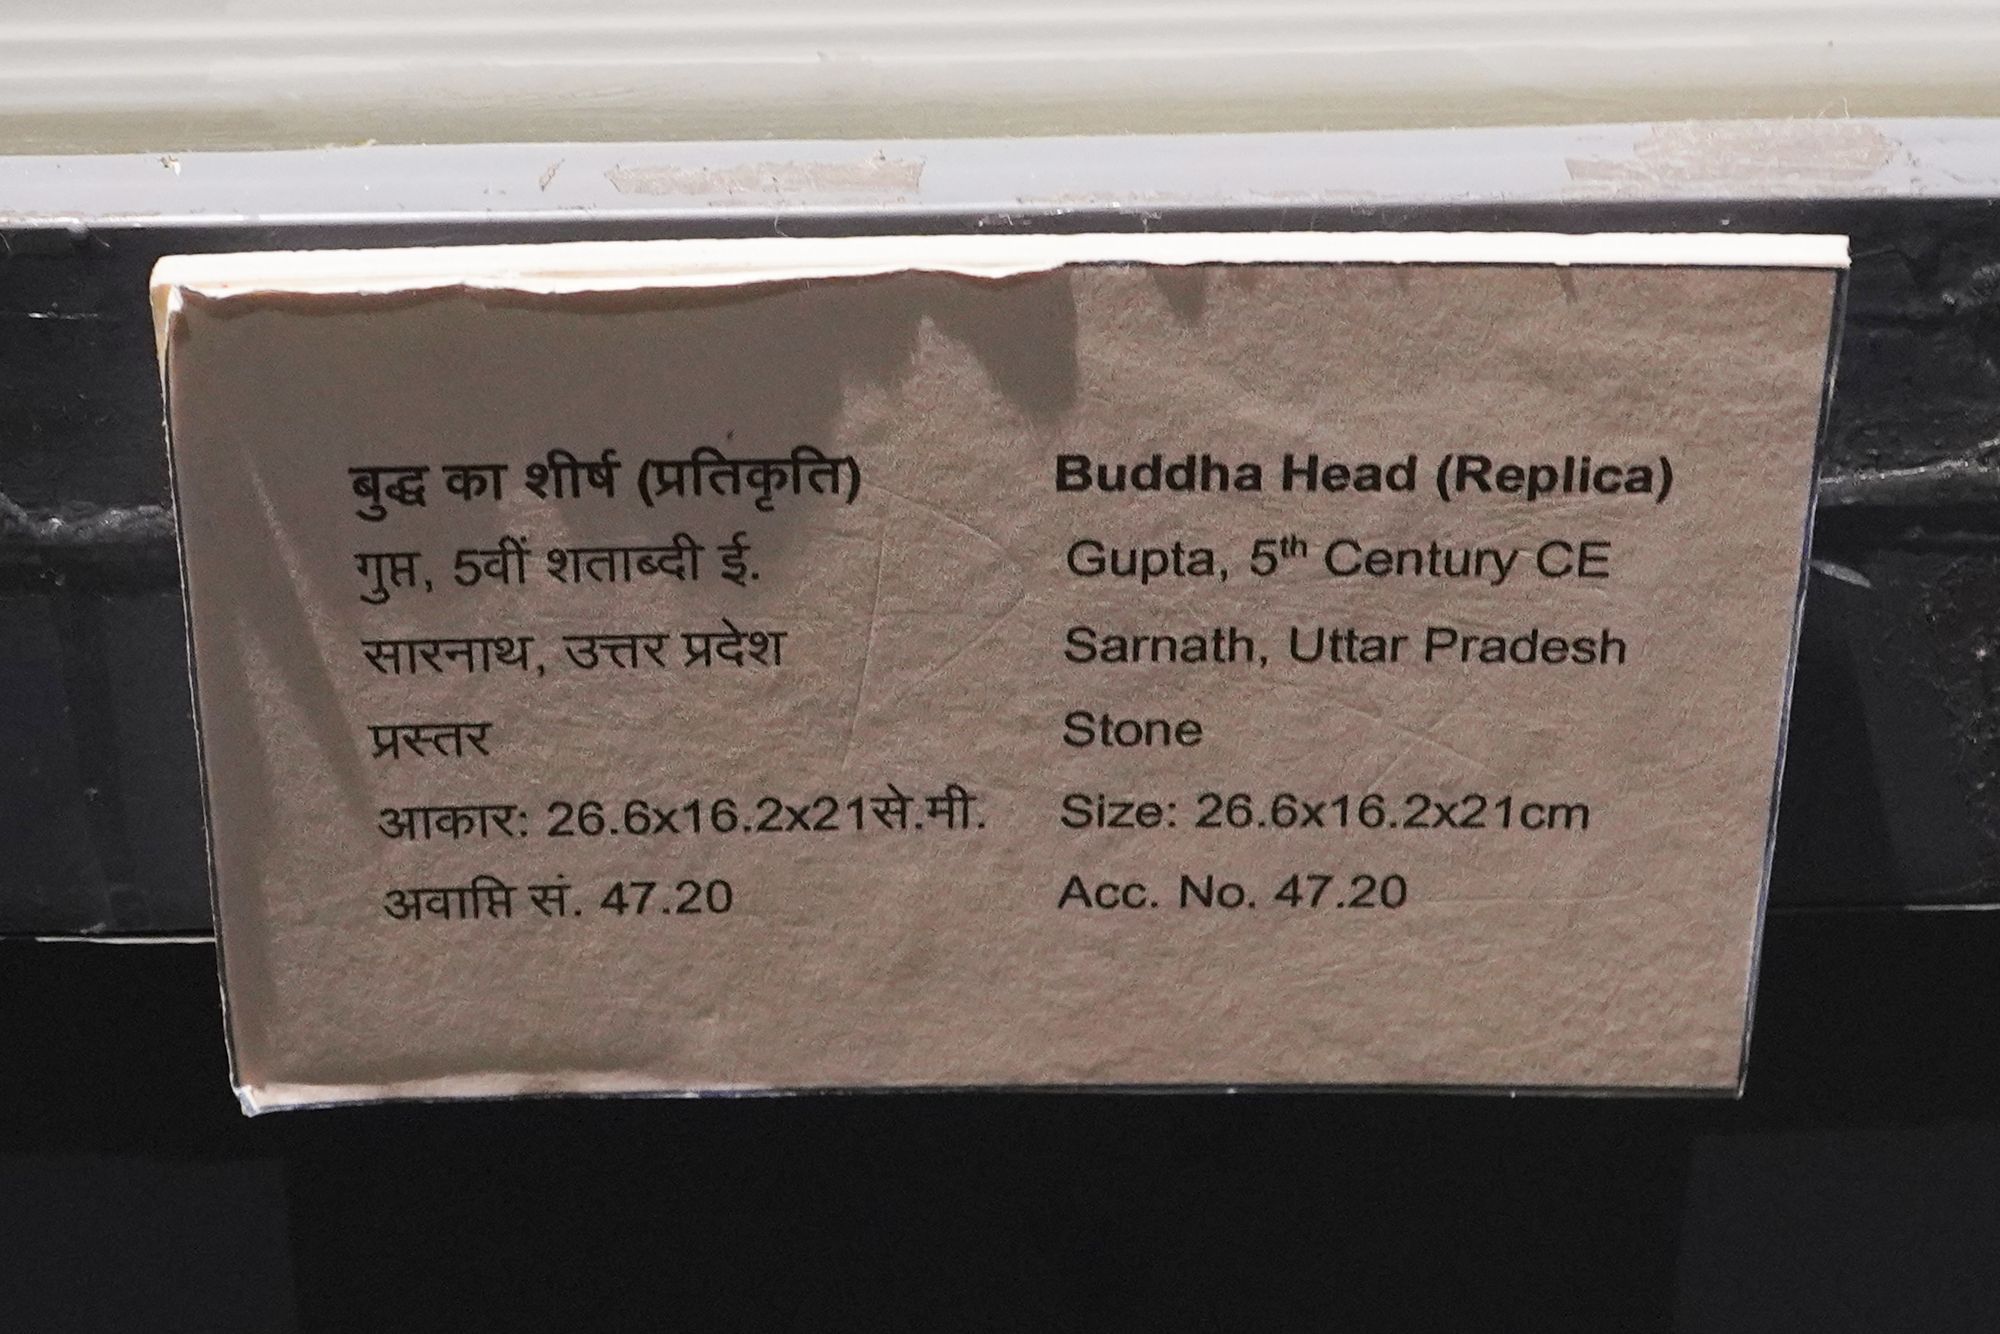 बुद्ध का शीर्ष (प्रतिकृति)
गुप्त, 5वीं शताब्दी ई.
सारनाथ, उत्तर प्रदेश
प्रस्तर
आकार: 26.6x16.2x21से.मी.
अवाप्ति सं. 47.20
Buddha Head (Replica)
Gupta, 5th Century CE
Sarnath, Uttar Pradesh
Stone
Size: 26.6x16.2x21cm
Acc. No. 47.20